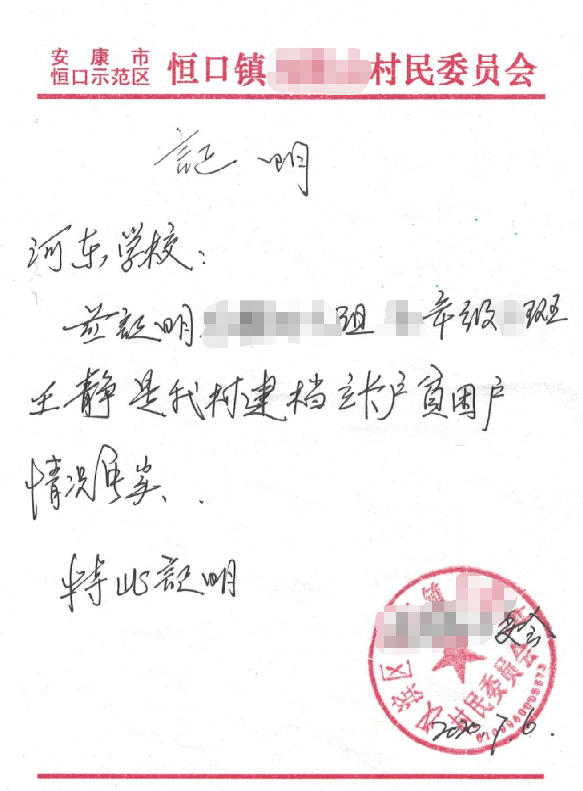 安康市
恒口示范区 恒口镇 村民委员会
证明
河东学校：
兹证明 组 年级 班
王静是我村建档立卡户贫困户
情况属实、.
特此证明
委会
村民委员会
2020.7.6.